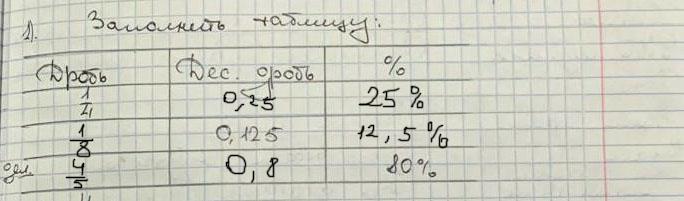 1). Заполнить таблицу:
Дробь Дес. дробь %
1/4 0,25 25%
1/8 0,125 12,5%
4/5 0,8 80%